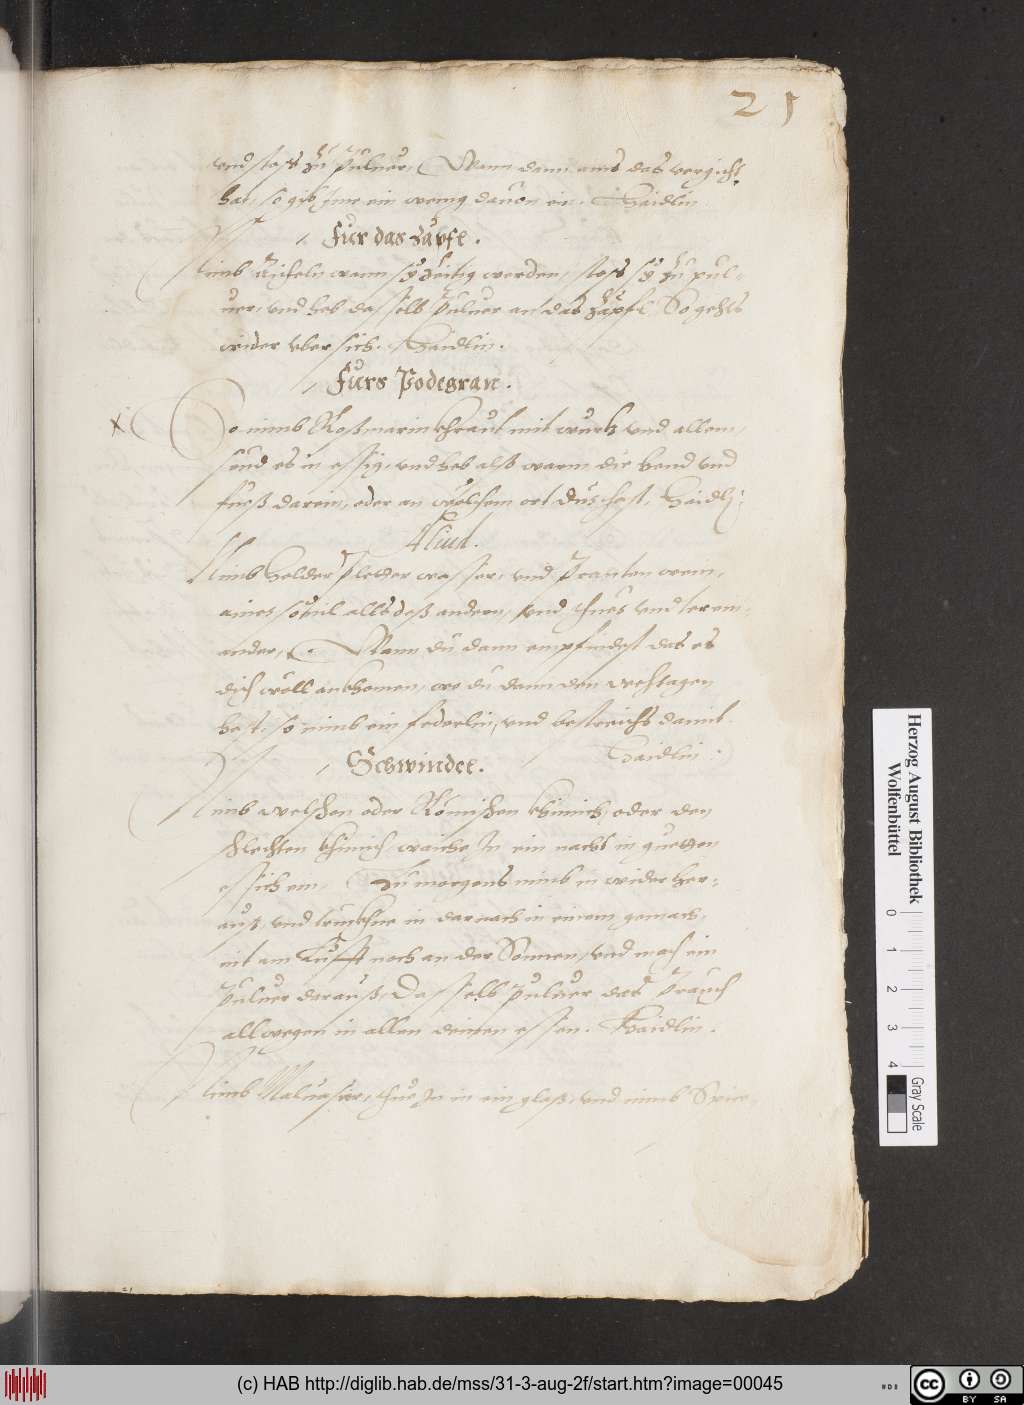 21
vnd stoss zu Puluer, Wann dann ains das vergicht
hat, so gib Jme ein wenig dauon ein. Haidlin
Fur das Zäpfl.
Nimb Aicheln wann sÿ Zeitig werden, stoss sÿ zu pul-
uer, vnd heb dasselb Puluer an das zäpfl, So gehts
wider vbersich. Haidlin.
Furs Podegran.
So nimb Roßmarin khraut mit wurtz vnd allem,
seud es in essig, vnd heb alß warm die hend vnd
fueß darein, oder an welchem ort dus hast. Haidl:
Aliud.
Nimb holder Pletter wasser, vnd Prantenwein,
aines souil alls deß andern, vnd thues vndterein-
ander, Wann du dann empfindest das es
dich wöll ankhomen, wo du dann den wehtagen
hast, so nimb ein federlin, vnd bestreichs damit.
Haidlin.
Schwindel.
Nimb welschen oder Römischen khimich, oder den
schlechten khimich, waiche Jn ein nacht in guetten
essich ein, Zu morgens nimb in wider her-
auß, vnd trückhne in darnach in einem gemach,
nit am Lufft noch an der Sonnen, vnd mach ein
Puluer darauß, Dasselb puluer das Prauch
allwegen in allen deinen essen. Haidlin.
Nimb Maluasier, thue Jn in ein glaß, vnd nimb
Herzog August Bibliothek
Wolfenbüttel
0 1 2 3 4
Gray Scale
(c) HAB http://diglib.hab.de/mss/31-3-aug-2f/start.htm?image=00045
cc
BY SA